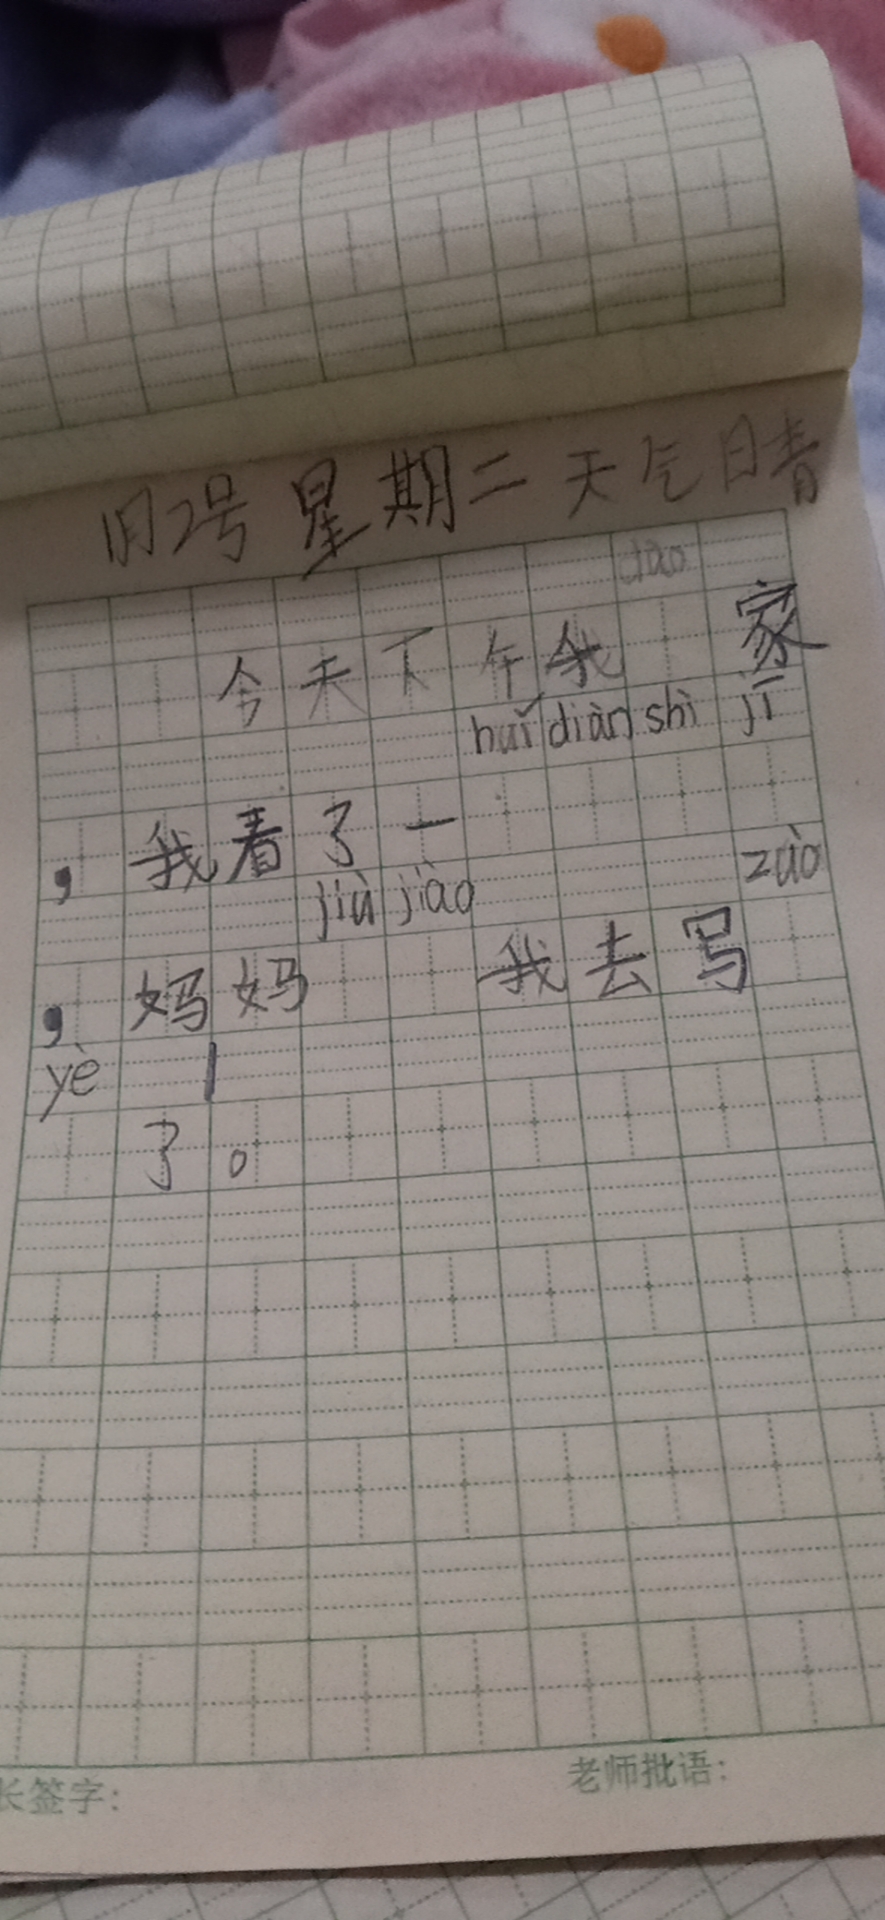 1月2号 星期二 天气晴
dào
今天下午我 家
huǐ diàn shì jī
，我看了一
jiù jiào zuò
，妈妈 我去写
yè
了。
长签字： 老师批语：